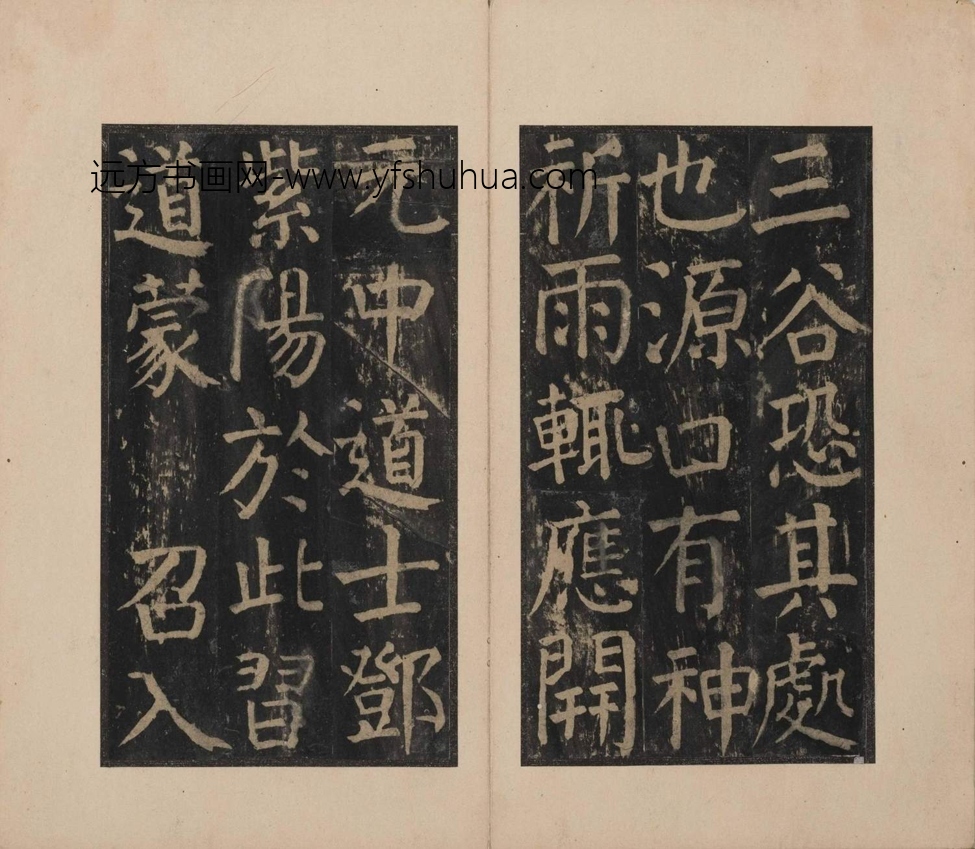 三谷恐其處
也源口有神
祈雨輒應開
元中道士鄧
紫陽於此習
道蒙召入
远方书画网-www.yfshuhua.com